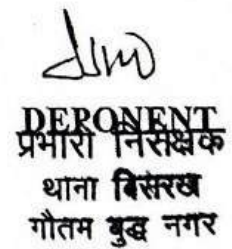 DEPONENT
प्रभारी निरीक्षक
थाना बिसरख
गौतम बुद्ध नगर